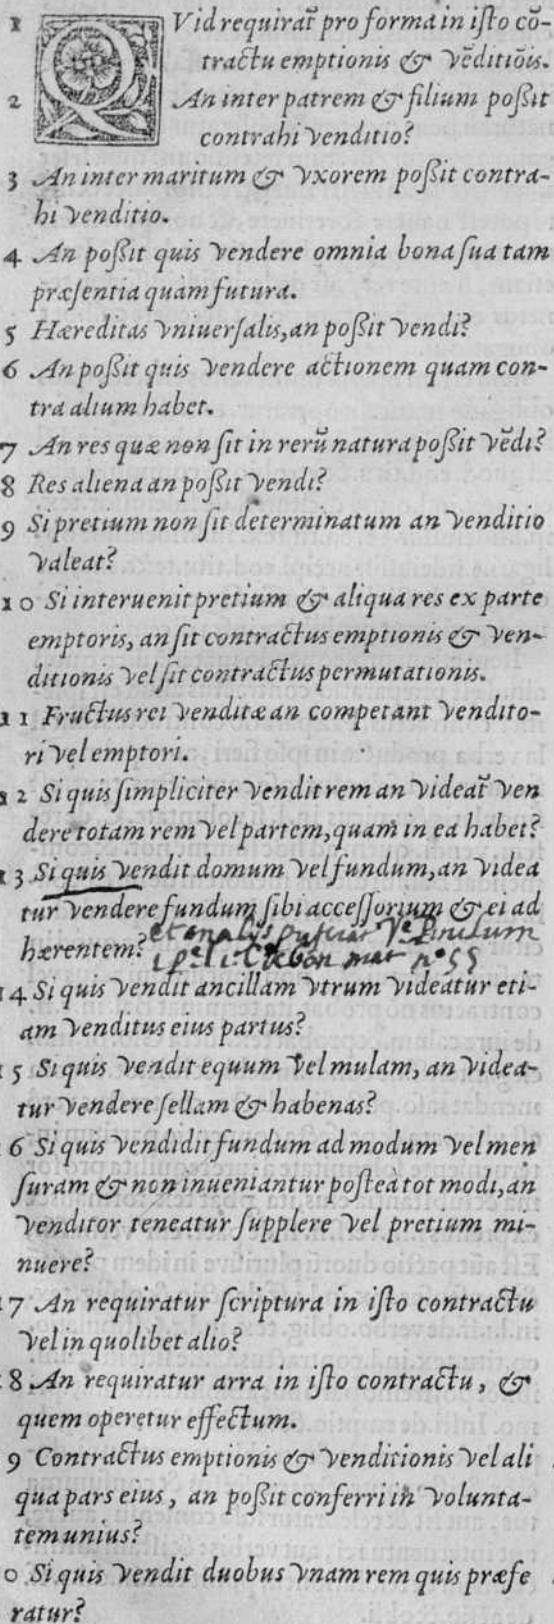 1 QVid requirat̃ pro forma in iſto cõ-
tractu emptionis & vẽditiõis.
2 An inter patrem & filium poſsit
contrahi venditio?
3 An inter maritum & vxorem poſsit contra-
hi venditio.
4 An poſsit quis vendere omnia bona ſua tam
præſentia quam futura.
5 Hæreditas vniuerſalis, an poſsit vendi?
6 An poſsit quis vendere actionem quam con-
tra alium habet.
7 An res quæ non ſit in rerũ natura poſsit vẽdi?
8 Res aliena an poſsit vendi?
9 Si pretium non ſit determinatum an venditio
valeat?
10 Si interuenit pretium & aliqua res ex parte
emptoris, an ſit contractus emptionis & ven-
ditionis vel ſit contractus permutationis.
11 Fructus rei venditæ an competant vendito-
ri vel emptori.
12 Si quis ſimpliciter vendit rem an videat̃ ven
dere totam rem vel partem, quam in ea habet?
13 Si quis vendit domum vel fundum, an videa
tur vendere fundum ſibi acceſſorium & ei ad
hærentem?
14 Si quis vendit ancillam vtrum videatur eti-
am venditus eius partus?
15 Si quis vendit equum vel mulam, an videa-
tur vendere ſellam & habenas?
16 Si quis vendidit fundum ad modum vel men
ſuram & non inueniantur poſteà tot modi, an
venditor teneatur ſupplere vel pretium mi-
nuere?
17 An requiratur ſcriptura in iſto contractu
vel in quolibet alio?
18. An requiratur arra in iſto contractu, &
quem operetur effectum.
9 Contractus emptionis & venditionis vel ali
qua pars eius, an poſsit conferri in volunta-
tem unius?
0 Si quis vendit duobus vnam rem quis præfe
ratur?